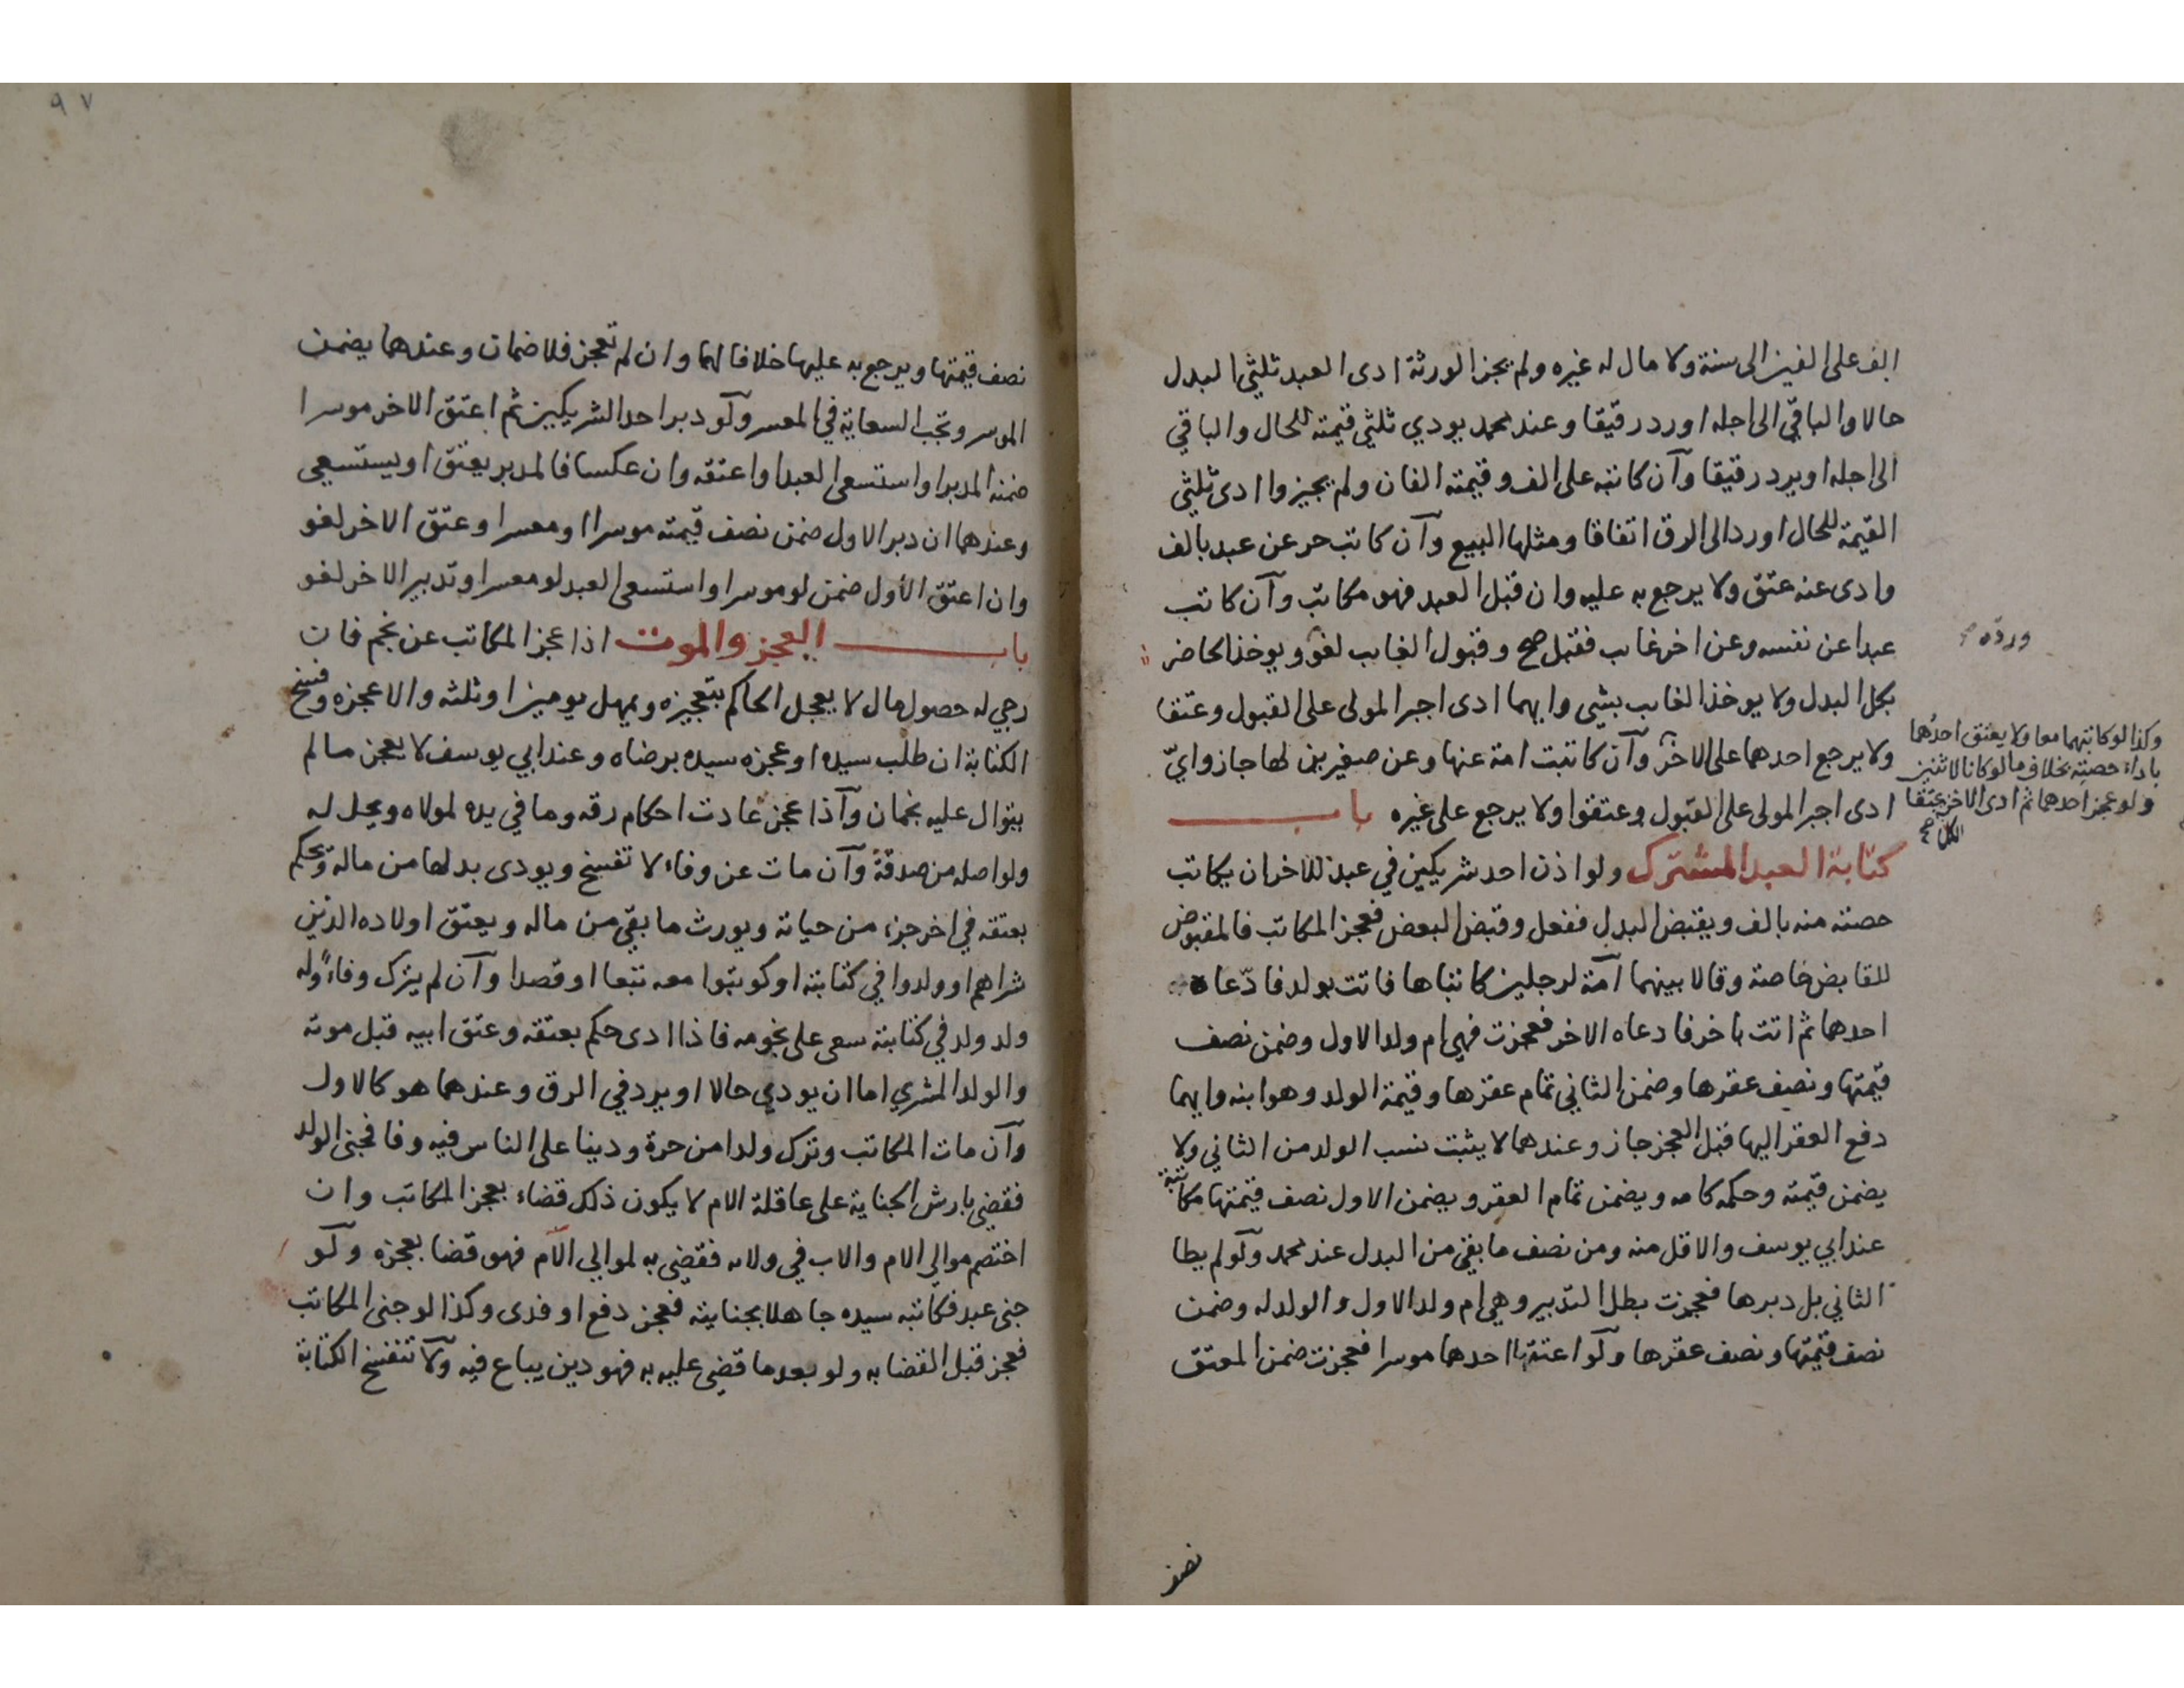 الف على الفين الى سنة ولا مال له غيره ولم يجز الورثة ادى العبد ثلثي البدل
حالا والباقي الى اجله او رد رقيقا وعند محمد يودي ثلثي قيمته للحال والباقي
الى اجله او يرد رقيقا وآن كاتبه على الف وقيمته الفان ولم يجيزوا ادى ثلثي
القيمة للحال او رد الى الرق اتفاقا ومثلها البيع وآن كاتب حر عن عبد بالف
وادى عنه عتق ولا يرجع به عليه وان قبل العبد فهو مكاتب وآن كاتب
عبدا عن نفسه وعن اخر غاىب فقبل صح وقبول الغاىب لغو ويوخذ الحاضر
بكل البدل ولا يوخذ الغاىب بشي وايهما ادى اجبر المولى على القبول وعتقا
ولا يرجع احدهما على الاخر وآن كاتبت امة عنها وعن صغيرين لها جاز وايّ
ادى اجبر المولى على القبول وعتقوا ولا يرجع على غيره باب
كتابة العبد المشترك ولو اذن احد شريكين في عبد للاخر ان يكاتب
حصته منه بالف ويقبض البدل ففعل وقبض البعض فعجز المكاتب فالمقبوض
للقابض خاصة وقالا بينهما آمة لرجلين كاتباها فاتت بولد فادّعا
احدهما ثم اتت باخر فادعاه الاخر فعجزت فهي ام ولد الاول وضمن نصف
قيمتها ونصف عقرها وضمن الثاني تمام عقرها وقيمة الولد وهو ابنه وايهما
دفع العقر اليها قبل العجز جاز وعندهما لا يثبت نسب الولد من الثاني ولا
يضمن قيمته وحكمه كامه ويضمن تمام العقر ويضمن الاول نصف قيمتها مكاتبة
عند ابي يوسف والاقل منه ومن نصف ما بقي من البدل عند محمد وآلو لم يطا
الثاني بل دبرها فعجزت بطل التدبير وهي ام ولد الاول والولد له وضمن
نصف قيمتها ونصف عقرها ولو اعتقها احدهما موسرا فعجزت ضمن المعتق
نصف
وردّه صح
وكذا لو كاتبهما معا ولا يعتق احدهما
باداء حصته بخلاف ما لو كانا لاثنين
ولو عجز احدهما ثم ادى الاخر عتقا
الكل صح
٩٧
نصف قيمتها ويرجع به عليها خلافا لهما وان لم تعجز فلا ضمان وعندهما يضمن
الموسر وتجب السعاية في المعسر ولو دبر احد الشريكين ثم اعتق الاخر موسرا
ضمنه المدبر او استسعى العبد او اعتقه وان عكسا فالمدبر يعتق او يستسعي
وعندهما ان دبر الاول ضمن نصف قيمته موسرا او معسرا وعتق الاخر لغو
وان اعتق الأول ضمن لو موسرا واستسعى العبد لو معسرا وتدبير الاخر لغو
باب العجز والموت اذا عجز المكاتب عن نجم فان
رجي له حصول مال لا يعجل الحاكم بتعجيزه ويمهل يومين او ثلثه والا عجزه وفسخ
الكتابة ان طلب سيده او عجزه سيده برضاه وعند ابي يوسف لا يعجز ما لم
يتوال عليه نجمان وآذا عجز عادت احكام رقه وما في يده لمولاه ويحل له
ولو اصله من صدقة وآن مات عن وفاء لا تفسخ ويودى بدلها من ماله ويحكم
بعتقه في اخر جزء من حياته ويورث ما بقي من ماله ويعتق اولاده الذين
شراهم او ولدوا في كتابته او كوتبوا معه تبعا او قصدا وآن لم يترك وفاء وله
ولد ولد في كتابته سعى على نجومه فاذا ادى حكم بعتقه وعتق ابيه قبل موته
والولد المشري اما ان يودي حالا او يرد في الرق وعندهما هو كالاول
وآن مات المكاتب وترك ولدا من حرة ودينا على الناس فيه وفا فجنى الولد
فقضي بارش الجناية على عاقلة الام لا يكون ذلك قضاء بعجز المكاتب وان
اختصم موالي الام والاب في ولائه فقضي به لموالي الام فهو قضا بعجزه ولو
جنى عبد فكاتبه سيده جاهلا بجنايته فعجز دفع او فدى وكذا لو جنى المكاتب
فعجز قبل القضا به ولو بعد ما قضي عليه به فهو دين يباع فيه ولا تنفسخ الكتابة